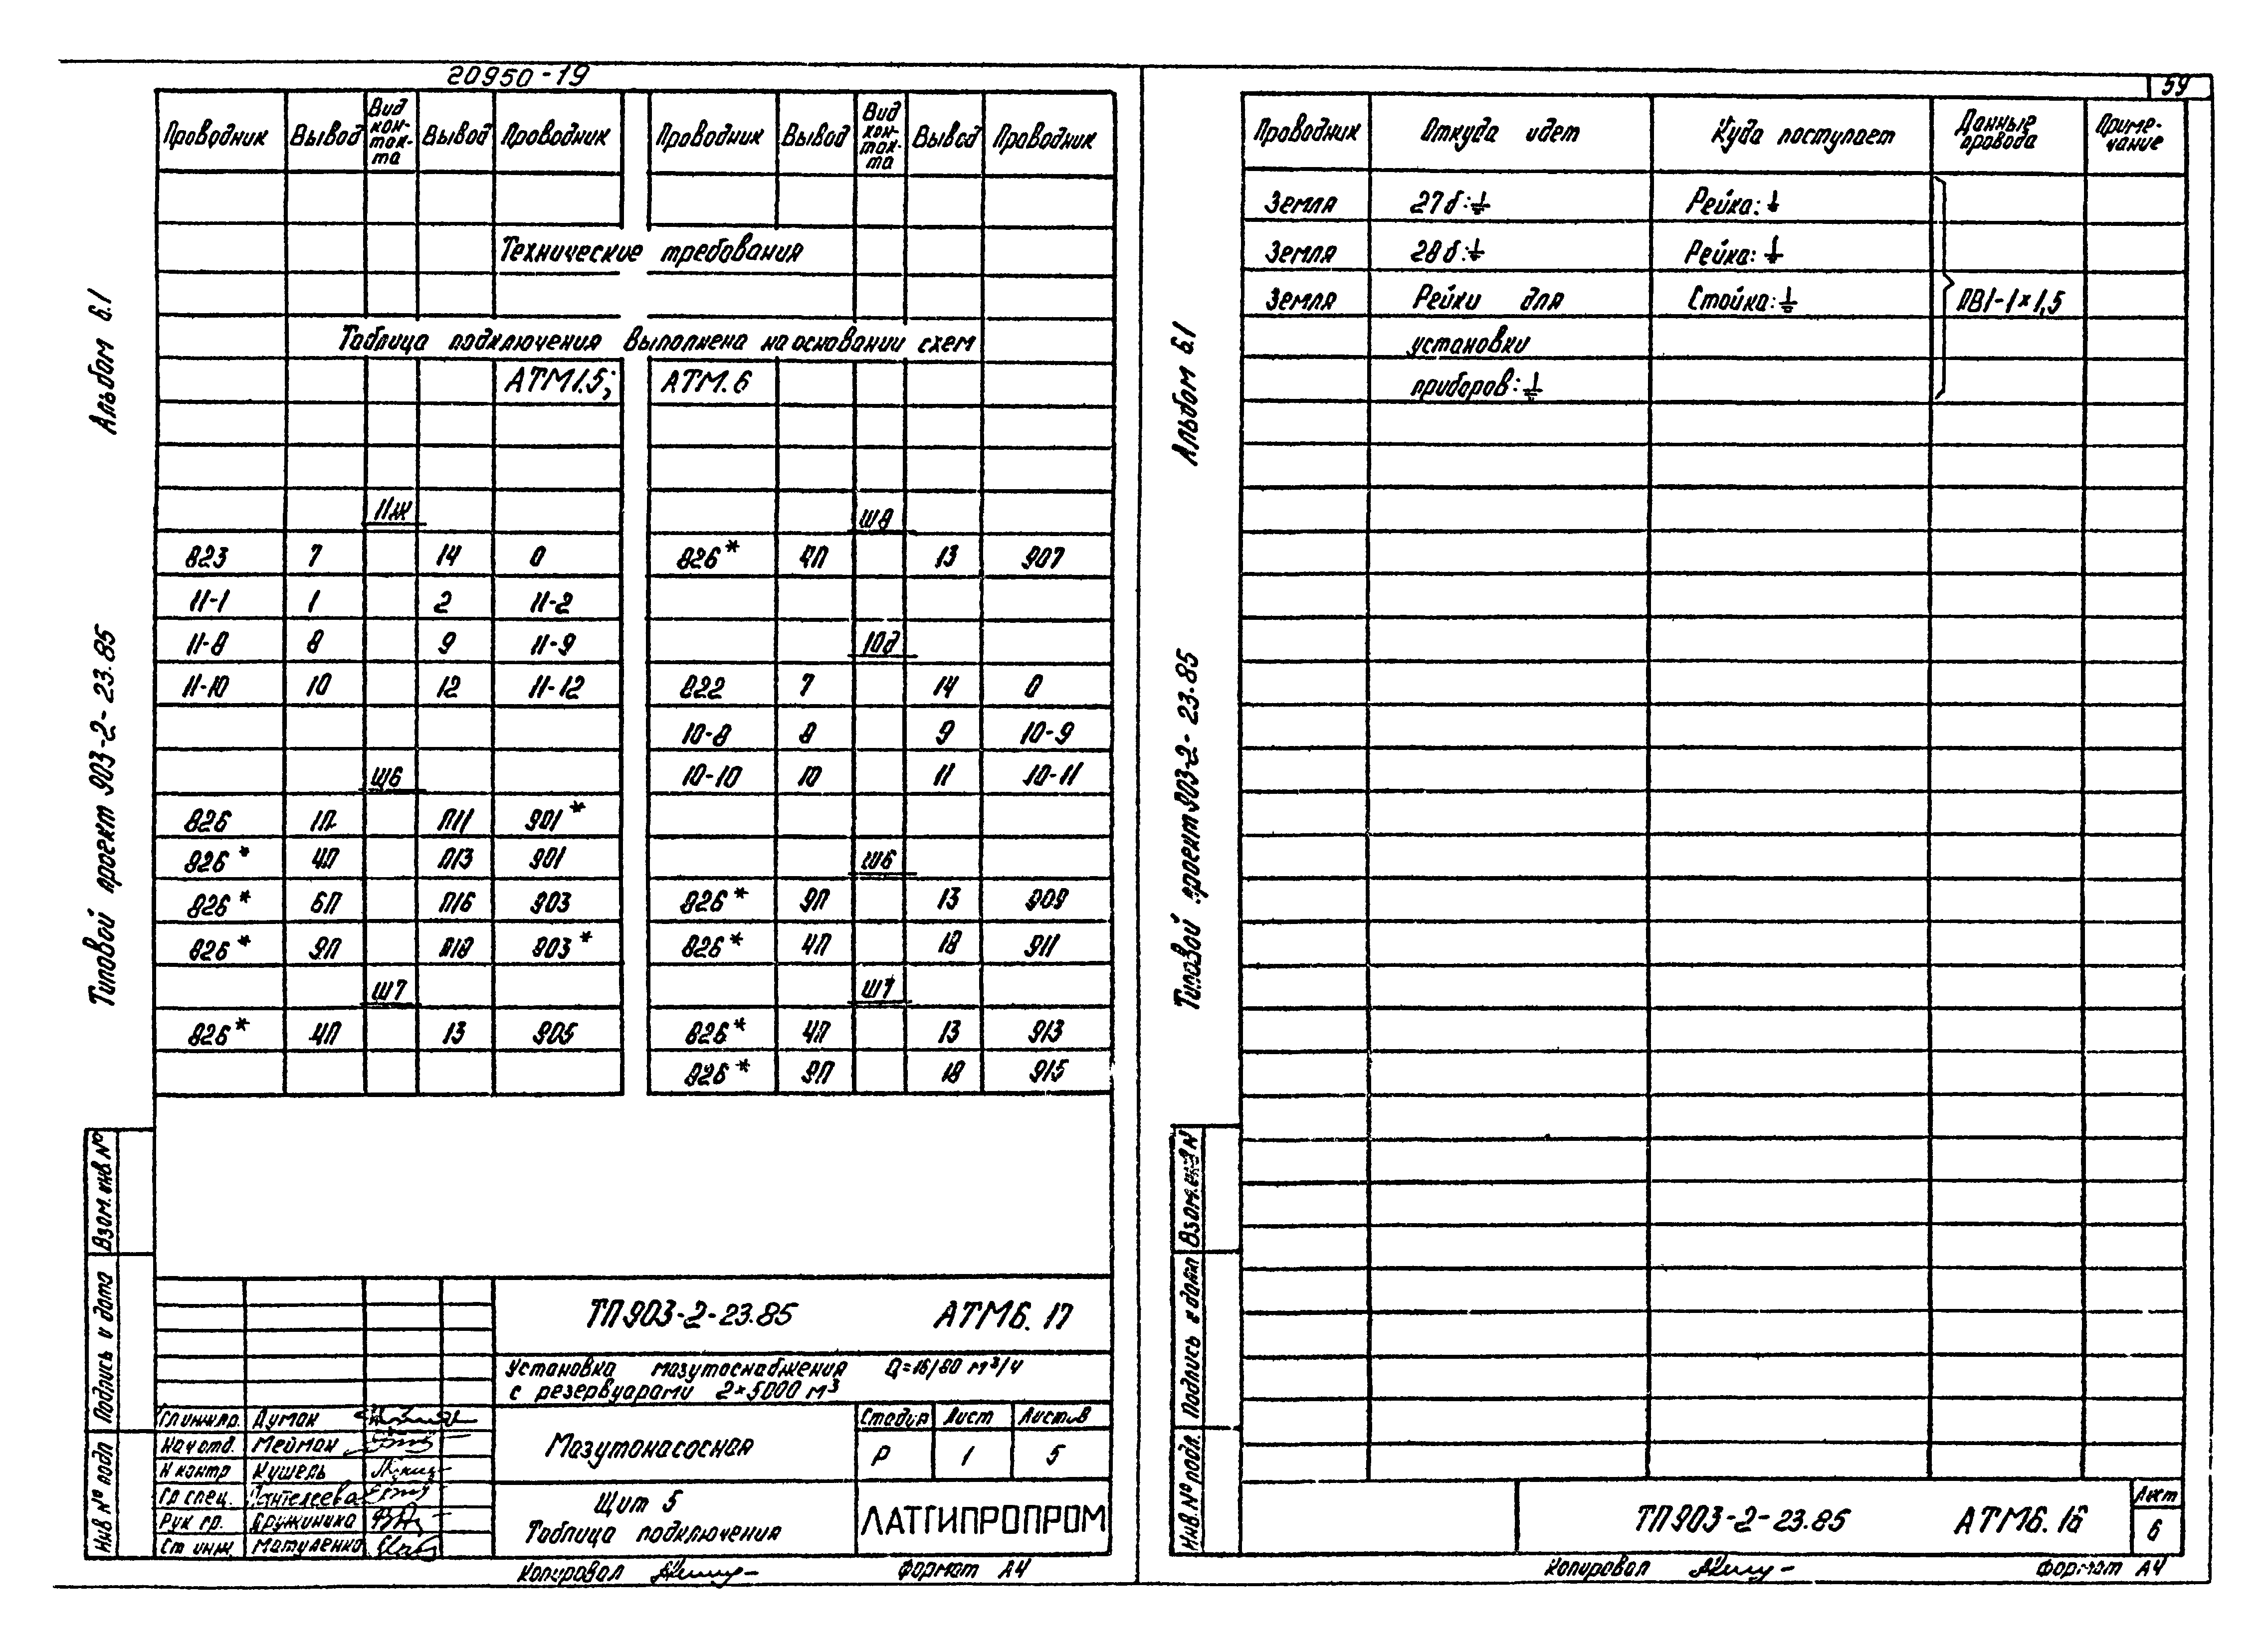 20950-19
Проводник Вывод Вид кон-так-та Вывод Проводник Проводник Вывод Вид кон-так-та Вывод Проводник
Технические требования
Таблица подключения выполнена на основании схем
АТМ1.5; АТМ.6
11ж Ш8
823 7 14 0 826* 4П 13 907
11-1 1 2 11-2
11-8 8 9 11-9 10д
11-10 10 12 11-12 822 7 14 0
10-8 8 9 10-9
Ш6 10-10 10 11 10-11
826 1П П11 901*
826* 4П П13 901 Ш6
826* 6П П16 903 826* 9П 13 909
826* 9П П18 903* 826* 4П 18 911
Ш7 Ш7
826* 4П 13 905 826* 4П 13 913
826* 9П 18 915
Альбом 6.1
Типовой проект 903-2-23.85
Взам. инв. №
Подпись и дата
Инв № подл
ТП903-2-23.85 АТМ6.17
Установка мазутоснабжения Q=16/80 м³/ч
с резервуарами 2×5000 м³
Гл инж пр. Думан
Нач отд. Мейман
Н контр Кушель
Гл спец. Пантелеева
Рук гр. Дружинина
Ст инж. Матуленко
Мазутонасосная
Стадия Лист Листов
Р 1 5
Щит 5
Таблица подключения
ЛАТГИПРОПРОМ
Копировал Формат А4
59
Проводник Откуда идет Куда поступает Данные провода Приме-чание
Земля 27б:⏚ Рейка:⏚
Земля 28б:⏚ Рейка:⏚
Земля Рейки для Стойка:⏚ ПВ1-1×1,5
установки
приборов:⏚
Альбом 6.1
Типовой проект 903-2-23.85
Взам. инв №
Подпись и дата
Инв. № подл.
ТП903-2-23.85 АТМ6.16
Лист
6
Копировал Формат А4